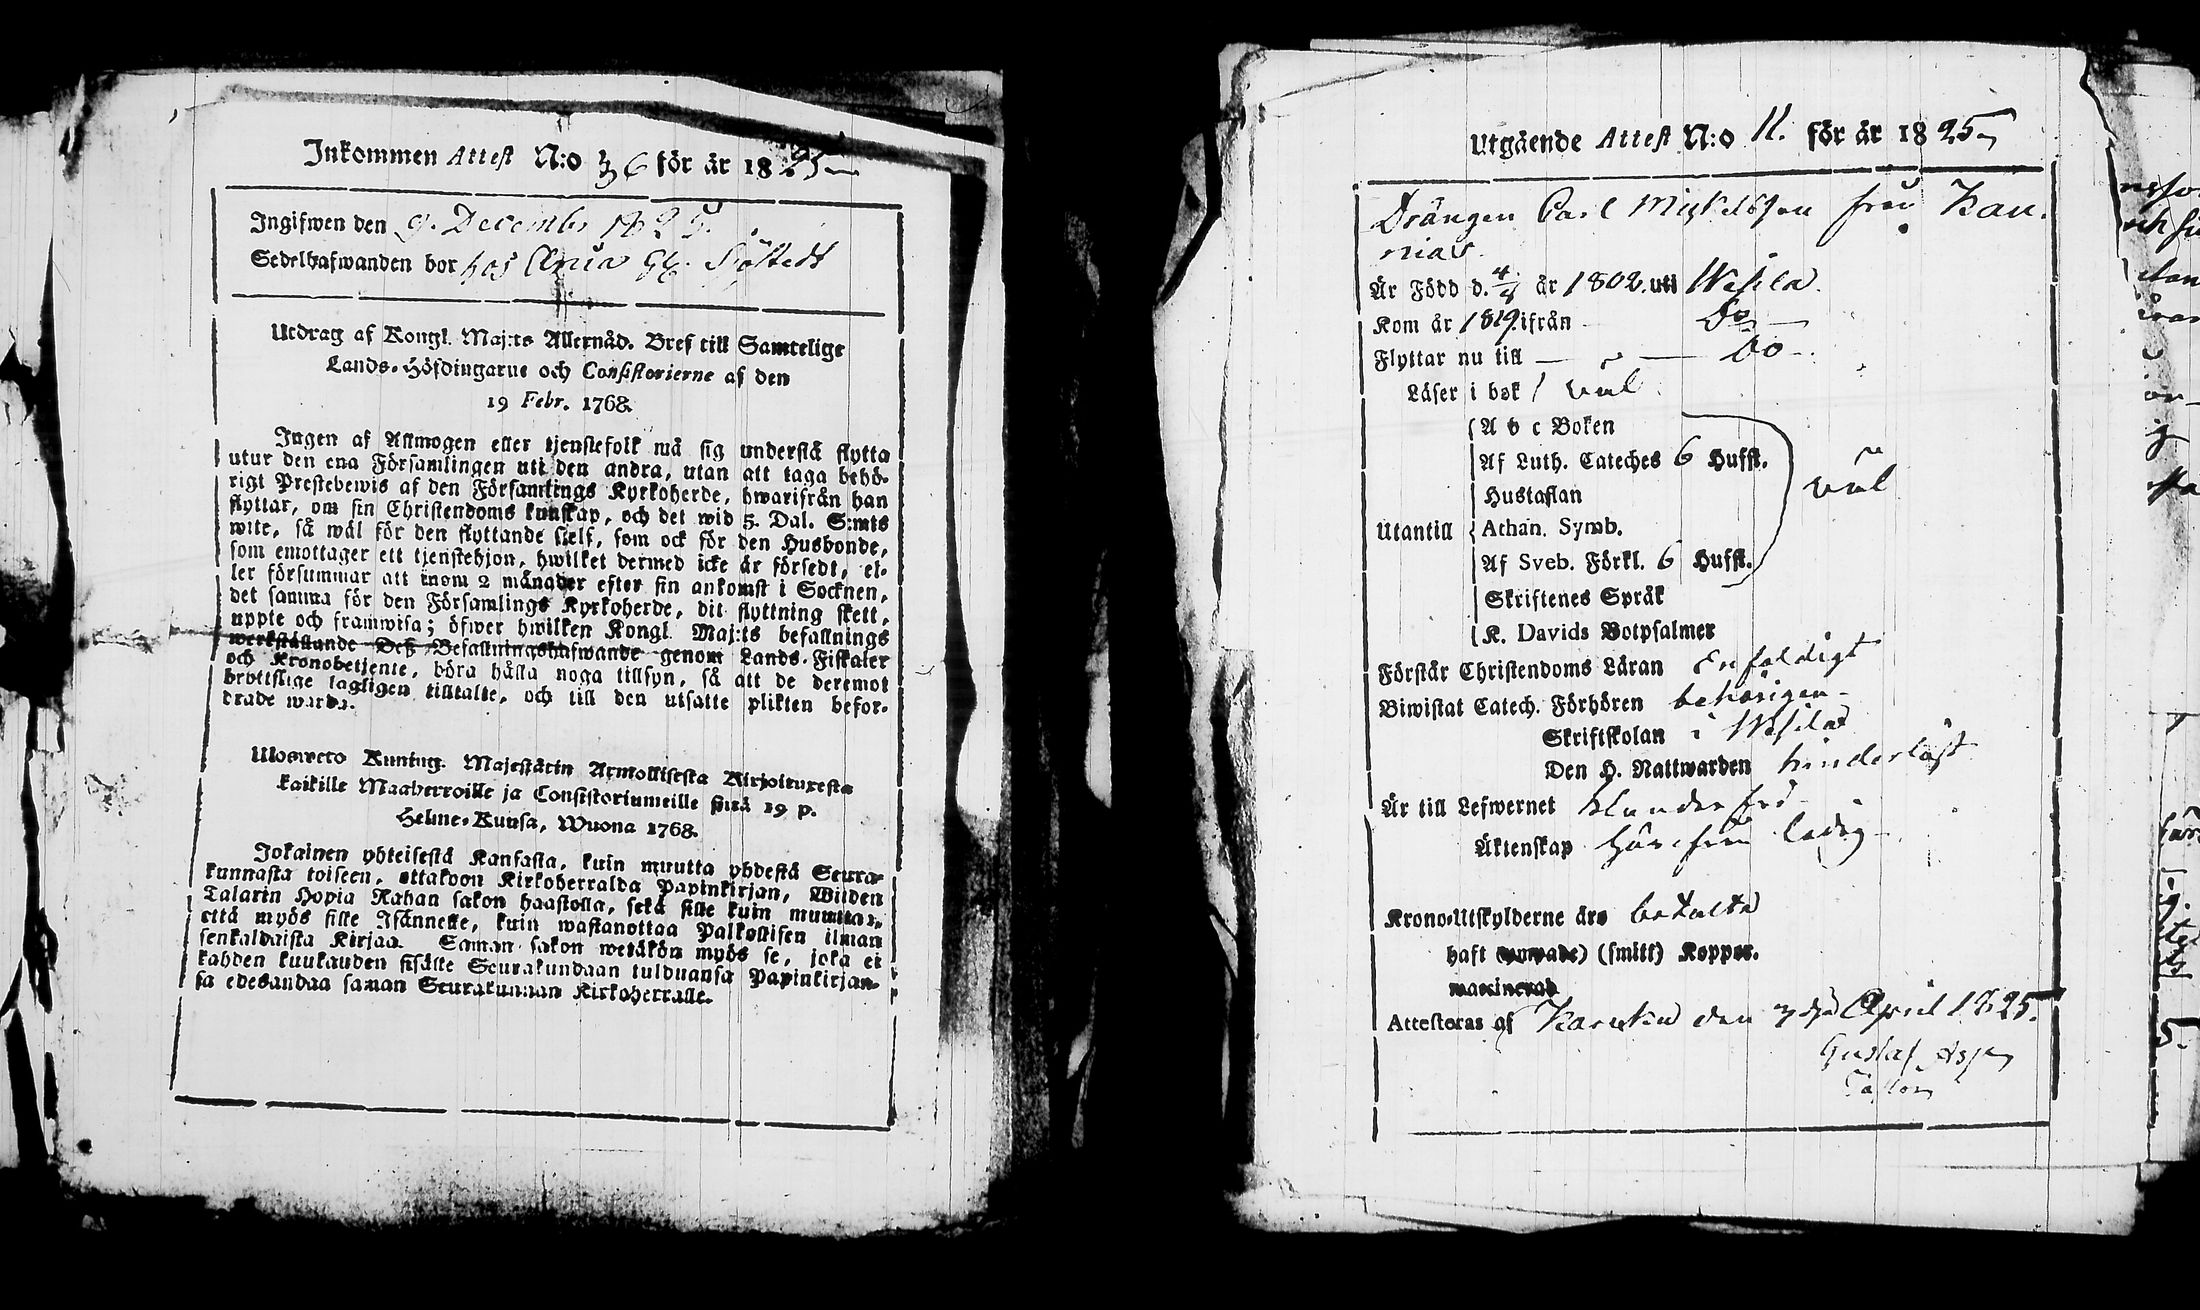 Inkommen Attest N:o 36 för år 1825
Ingifwen den 9. Decembr 1825.
Sedelhafwanden bor hos Sjöstedt
Utdrag af Kongl. Maj:ts Allernåd. Bref till Samtelige
Lands-Höfdingarne och Consistorierne af den
19 Febr. 1768.
Ingen af Allmogen eller tjenstefolk må sig understå flytta
utur den ena Församlingen uti den andra, utan att taga behö-
rigt Prestebewis af den Församlings Kyrkoherde, hwarifrån han
flyttar, om sin Christendoms kunskap, och det wid 5. Dal. S:mts
wite, så wäl för den flyttande sjelf, som ock för den Husbonde,
som emottager ett tjenstehjon, hwilket dermed icke är försedt, el-
ler försummar att inom 2 månader efter sin ankomst i Socknen,
det samma för den Församlings Kyrkoherde, dit flyttning skett,
uppte och framwisa; öfwer hwilken Kongl. Maj:ts befallnings
werkställande Deß Befallningshafwande genom Lands-Fiskaler
och Kronobetjente, böra hålla noga tillsyn, så att de deremot
brottslige lagligen tilltalte, och till den utsatte plikten befor-
drade warda.
Ulosweto Kuning. Majestätin Armollisesta Kirjoituxesta
kaikille Maaherroille ja Consistoriumeille siitä 19 p.
Helme-Kuusa, Wuona 1768.
Jokainen yhteisestä Kansasta, kuin muutta yhdestä Seura-
kunnasta toiseen, ottakoon Kirkoherralda Papinkirjan, Wiiden
Talarin Hopia Rahan sakon haastolla, sekä sille kuin muuttaa,
että myös sille Isännelle, kuin wastanottaa Palkollisen ilman
senkaldaista Kirjaa. Saman sakon wetäkön myös se, joka ei
kahden kuukauden sisälle Seurakundaan tulduansa Papinkirjan-
sa edesandaa saman Seurakunnan Kirkoherralle.
Utgående Attest N:o 11. för år 1825
Drängen Carl Mickelsson från Kan-
nias
Är Född d. 4/4 år 1802. uti Wesila.
Kom år 1819. ifrån Do
Flyttar nu till Do
Läser i bok väl
A b c Boken
Af Luth. Cateches 6 Hufst.
Hustaflan väl
Utantill Athan. Symb.
Af Sveb. Förkl. 6 Hufst.
Skriftenes Språk
K. Davids Botpsalmer
Förstår Christendoms Läran Enfaldigt
Biwistat Catech. Förhören behörigen
Skriftskolan i Wesila
Den H. Nattwarden hinderlöst
Är till Lefwernet klanderfri
Äktenskap härifrån ledig
Krono-Utskylderne äro betalta
haft (smitt) Koppor.
Attesteras af Karuku den 7 de April 1825.
Gustaf
Pastor